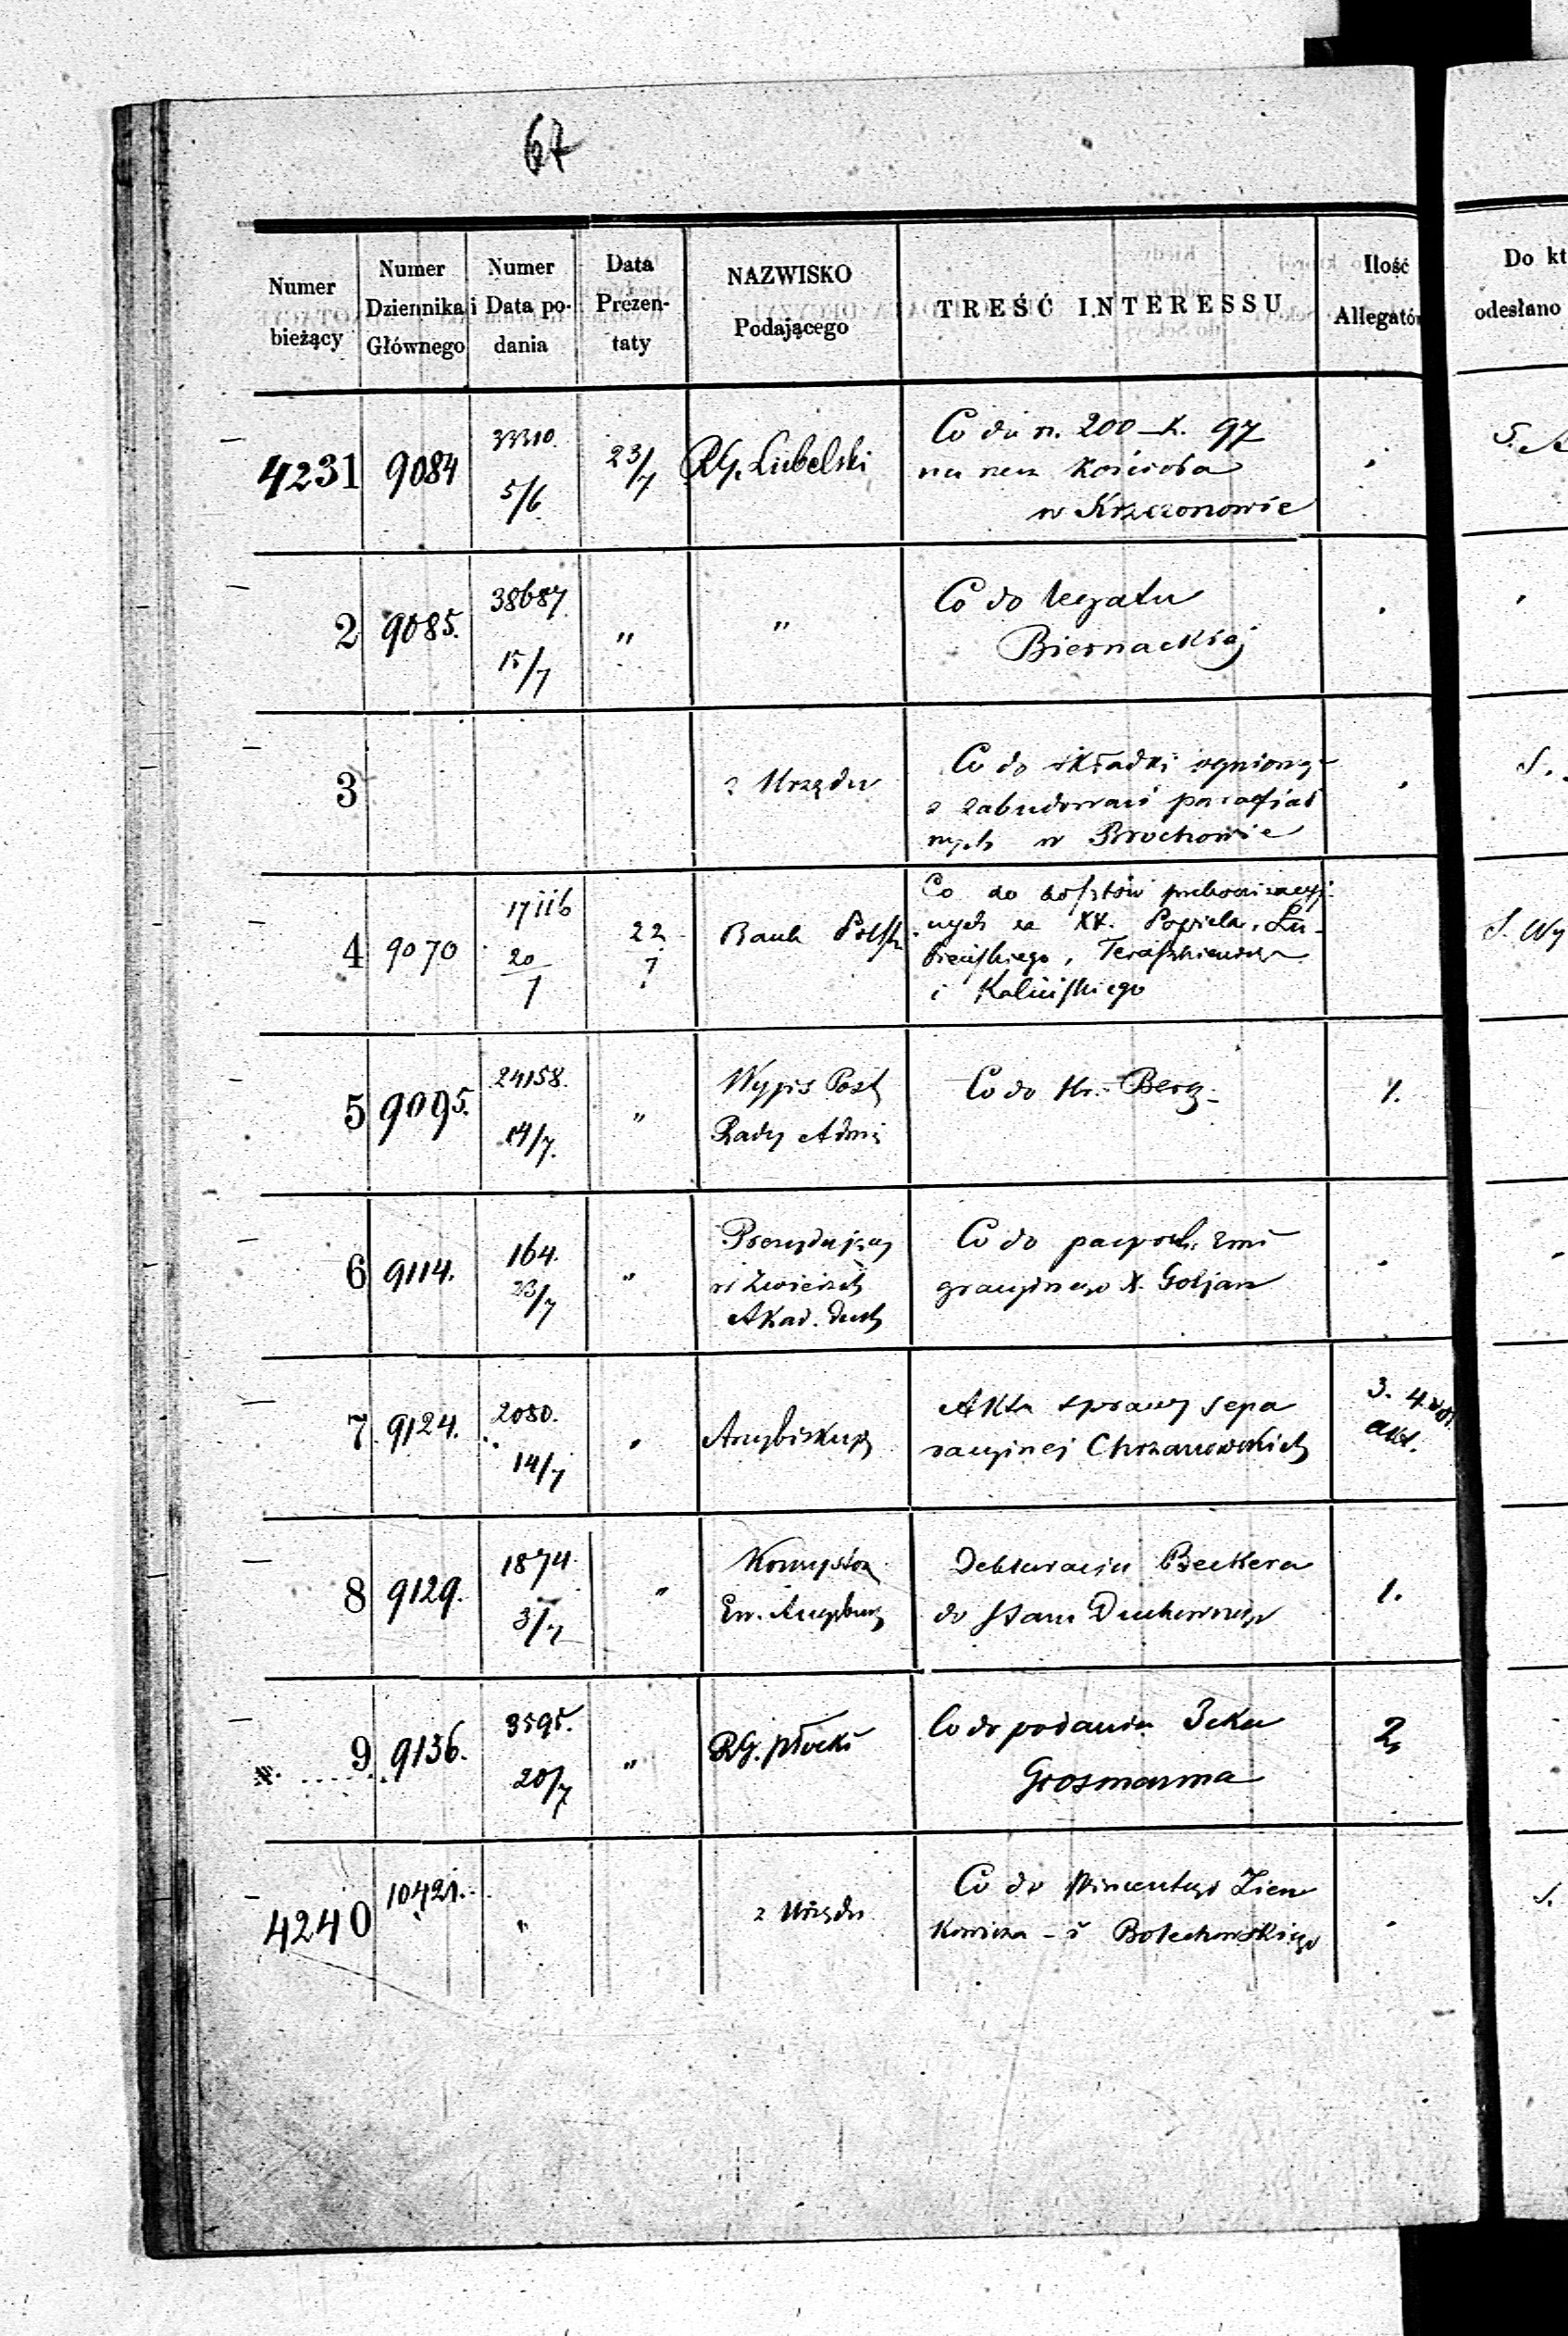 67
Numer bieżący
Numer Dziennika Głównego
Numer i Data podania
Data Prezentaty
NAZWISKO Podającego
TREŚĆ INTERESSU
Ilość Allegatów
Do kt
odesłano
4231 9084 33310. 5/6 23/7 RG. Lubelski
Co do r. 200 k. 97
na rzecz Kościoła
w Krzczonowie
2 9085. 38687. 15/7 " "
Co do legatu
Biernackiej
3 z Urzędu
Co do składki ogniowej
z zabudowań parafial
nych w Brochowie
4 9070 17116 20/7 22/7 Bank Polski
Co do kosztów
nych za XX. Popiela, Lu-
bieńskiego, Teraszkiewicza
i Kalińskiego
S. Wy
5 9095. 24158. 14/7. "
Wypis Post
Rady Admi
Co do Hr. Berg.
1.
6 9114. 164. 23/7 "
Prezydujący
w Zwierzch
Akad. Duch
Co do paszport. Emi
gracyjnego X. Goljan
7. 9124. 2080. 14/7 "
Arcybiskup
Akta sprawy sepa
racyjnej Chrzanowskich
3. 4
akt.
8 9129. 1874. 3/7 "
Konsystorz
Ew. Augsburg
Deklaracja Beckera
do stanu Duchownego
1.
9 9136. 3595. 20/7 " RG. Płocki
Co do podania Icka
Grosmanna
2,
4240 10421. " z Urzędu
Co do Wincentego Zien
kowicza - i Bolechowskiego
S.